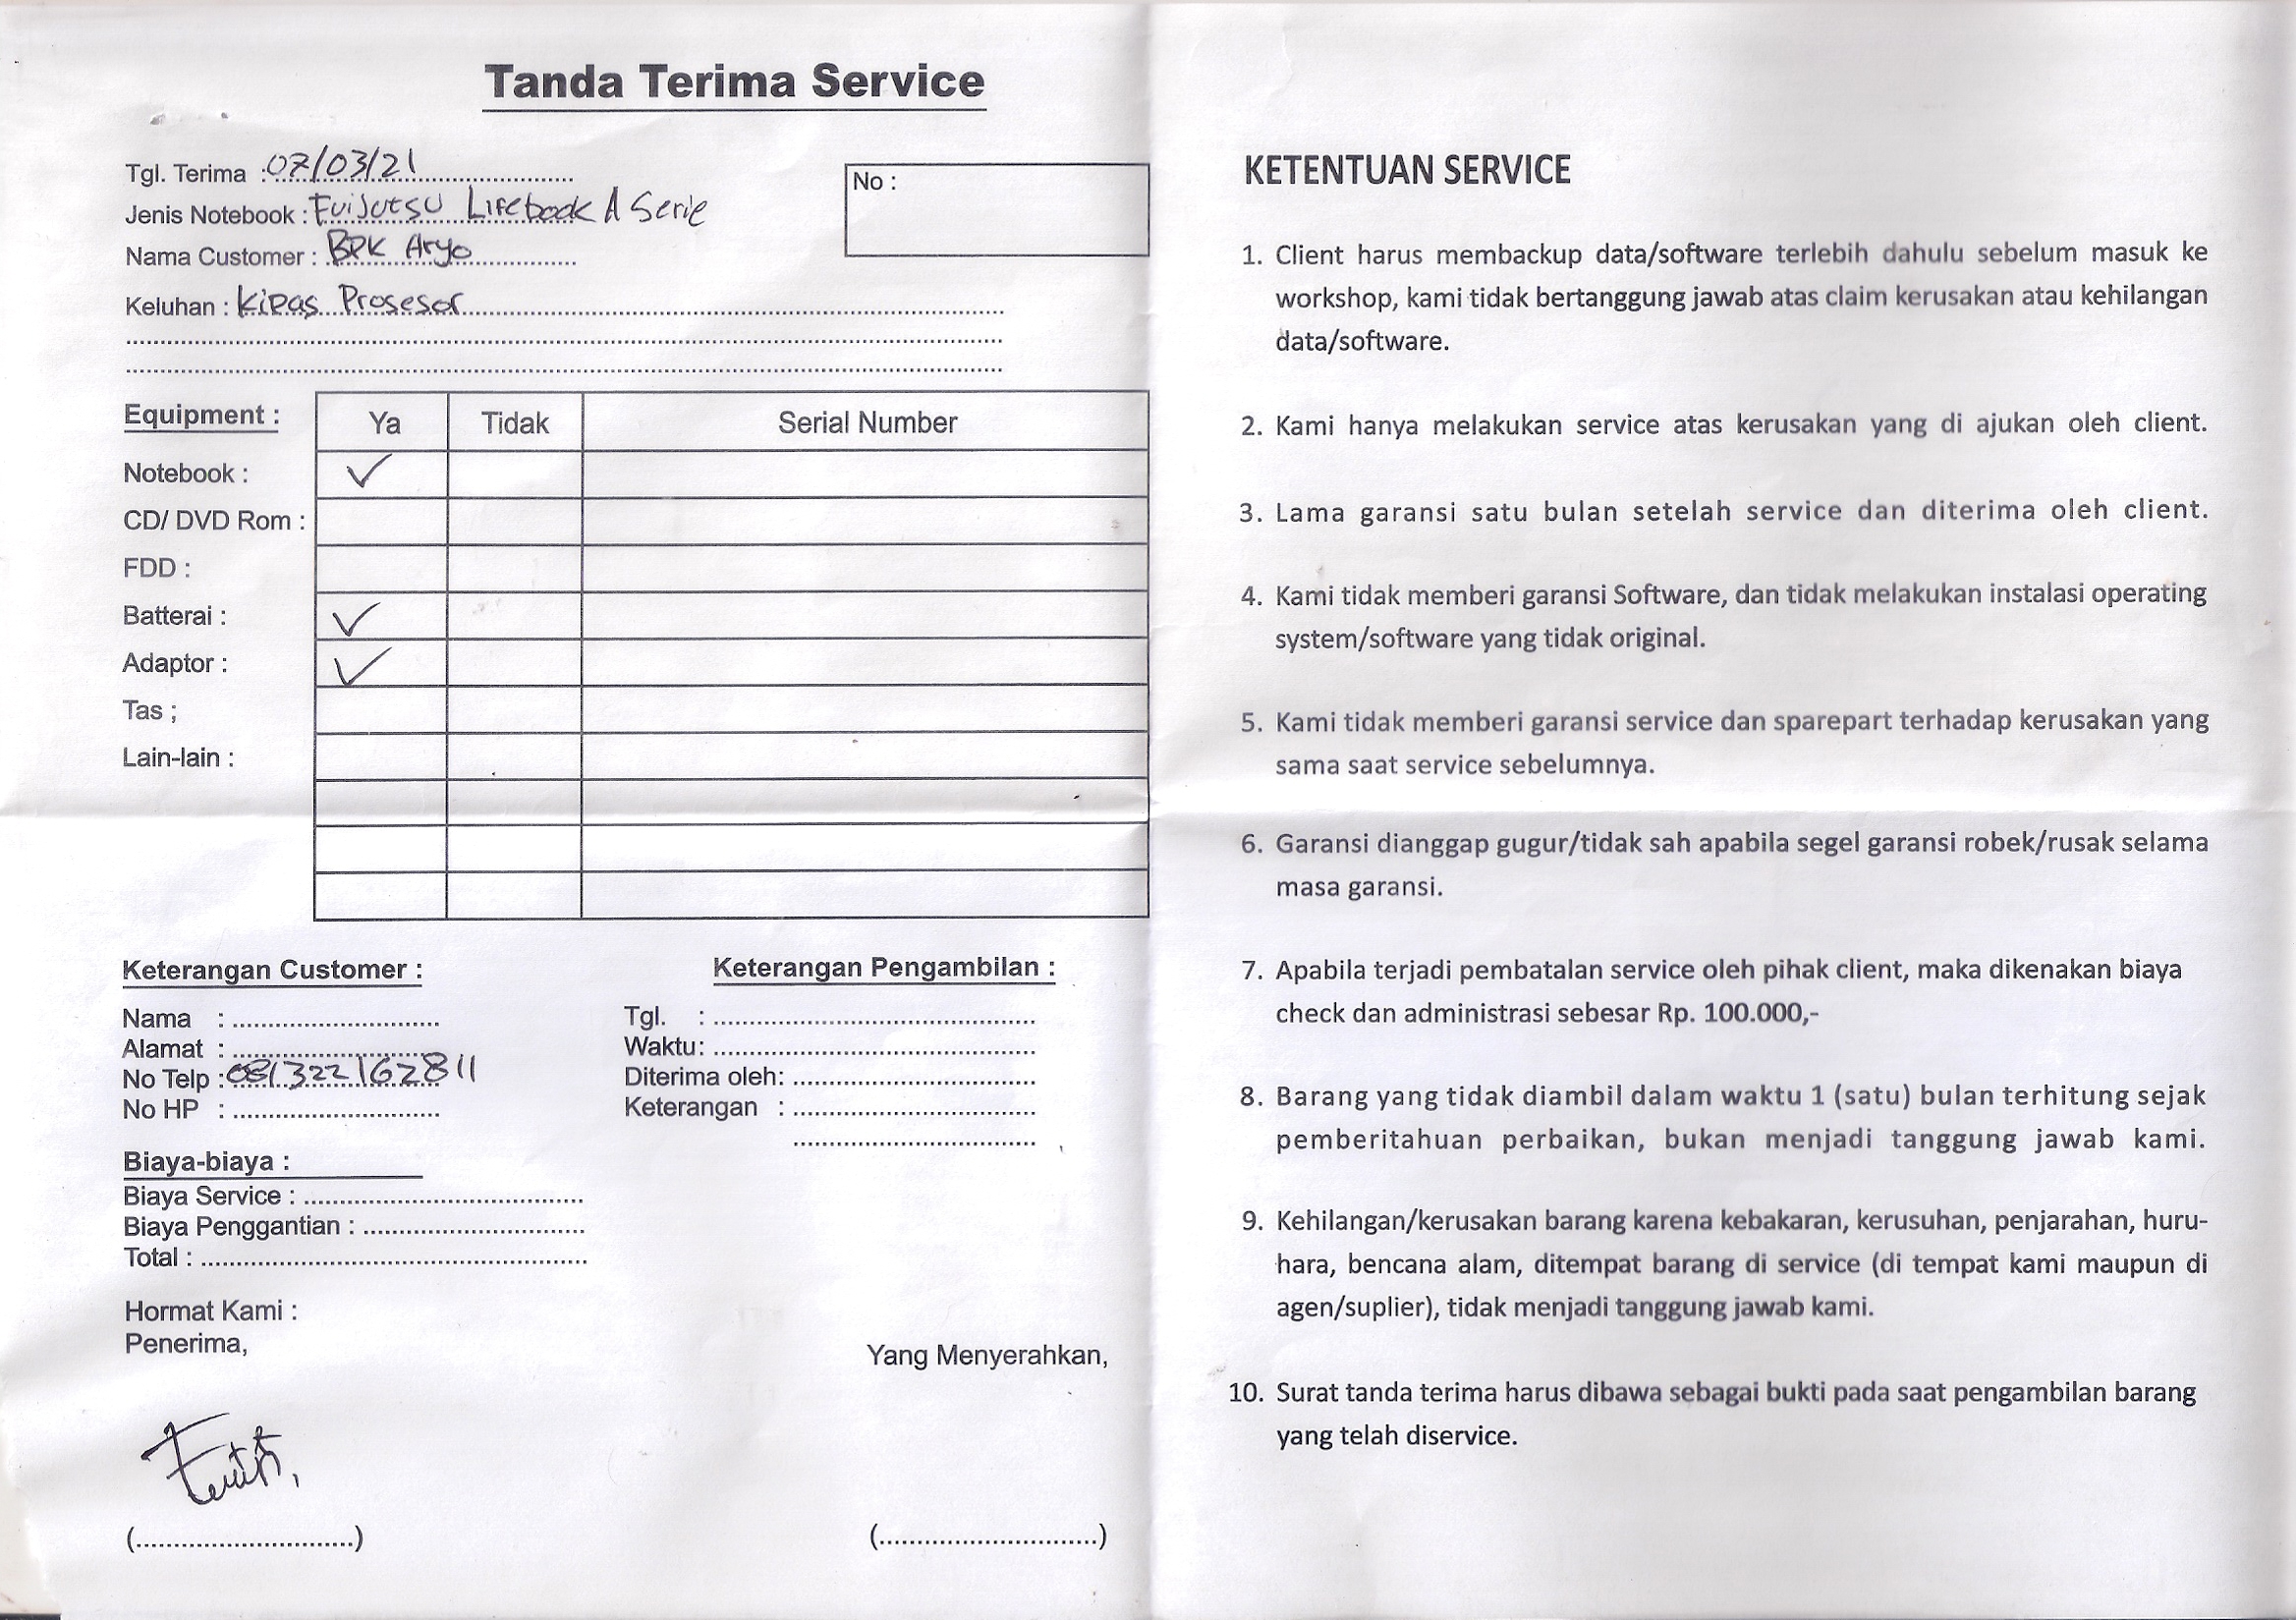 Tanda Terima Service
Tgl. Terima : 07/03/21
Jenis Notebook : Fuijutsu Lifebook A Serie
Nama Customer : BPK Aryo
Keluhan : Kipas Prosesor
No :
Equipment : Ya Tidak Serial Number
Notebook : ✓
CD/ DVD Rom :
FDD :
Batterai : ✓
Adaptor : ✓
Tas ;
Lain-lain :
Keterangan Customer :
Nama :
Alamat :
No Telp : 081322162811
No HP :
Keterangan Pengambilan :
Tgl. :
Waktu:
Diterima oleh:
Keterangan :
Biaya-biaya :
Biaya Service :
Biaya Penggantian :
Total :
Hormat Kami :
Penerima,
Yang Menyerahkan,
(..............................)
(..............................)
KETENTUAN SERVICE
1. Client harus membackup data/software terlebih dahulu sebelum masuk ke
workshop, kami tidak bertanggung jawab atas claim kerusakan atau kehilangan
data/software.
2. Kami hanya melakukan service atas kerusakan yang di ajukan oleh client.
3. Lama garansi satu bulan setelah service dan diterima oleh client.
4. Kami tidak memberi garansi Software, dan tidak melakukan instalasi operating
system/software yang tidak original.
5. Kami tidak memberi garansi service dan sparepart terhadap kerusakan yang
sama saat service sebelumnya.
6. Garansi dianggap gugur/tidak sah apabila segel garansi robek/rusak selama
masa garansi.
7. Apabila terjadi pembatalan service oleh pihak client, maka dikenakan biaya
check dan administrasi sebesar Rp. 100.000,-
8. Barang yang tidak diambil dalam waktu 1 (satu) bulan terhitung sejak
pemberitahuan perbaikan, bukan menjadi tanggung jawab kami.
9. Kehilangan/kerusakan barang karena kebakaran, kerusuhan, penjarahan, huru-
hara, bencana alam, ditempat barang di service (di tempat kami maupun di
agen/suplier), tidak menjadi tanggung jawab kami.
10. Surat tanda terima harus dibawa sebagai bukti pada saat pengambilan barang
yang telah diservice.